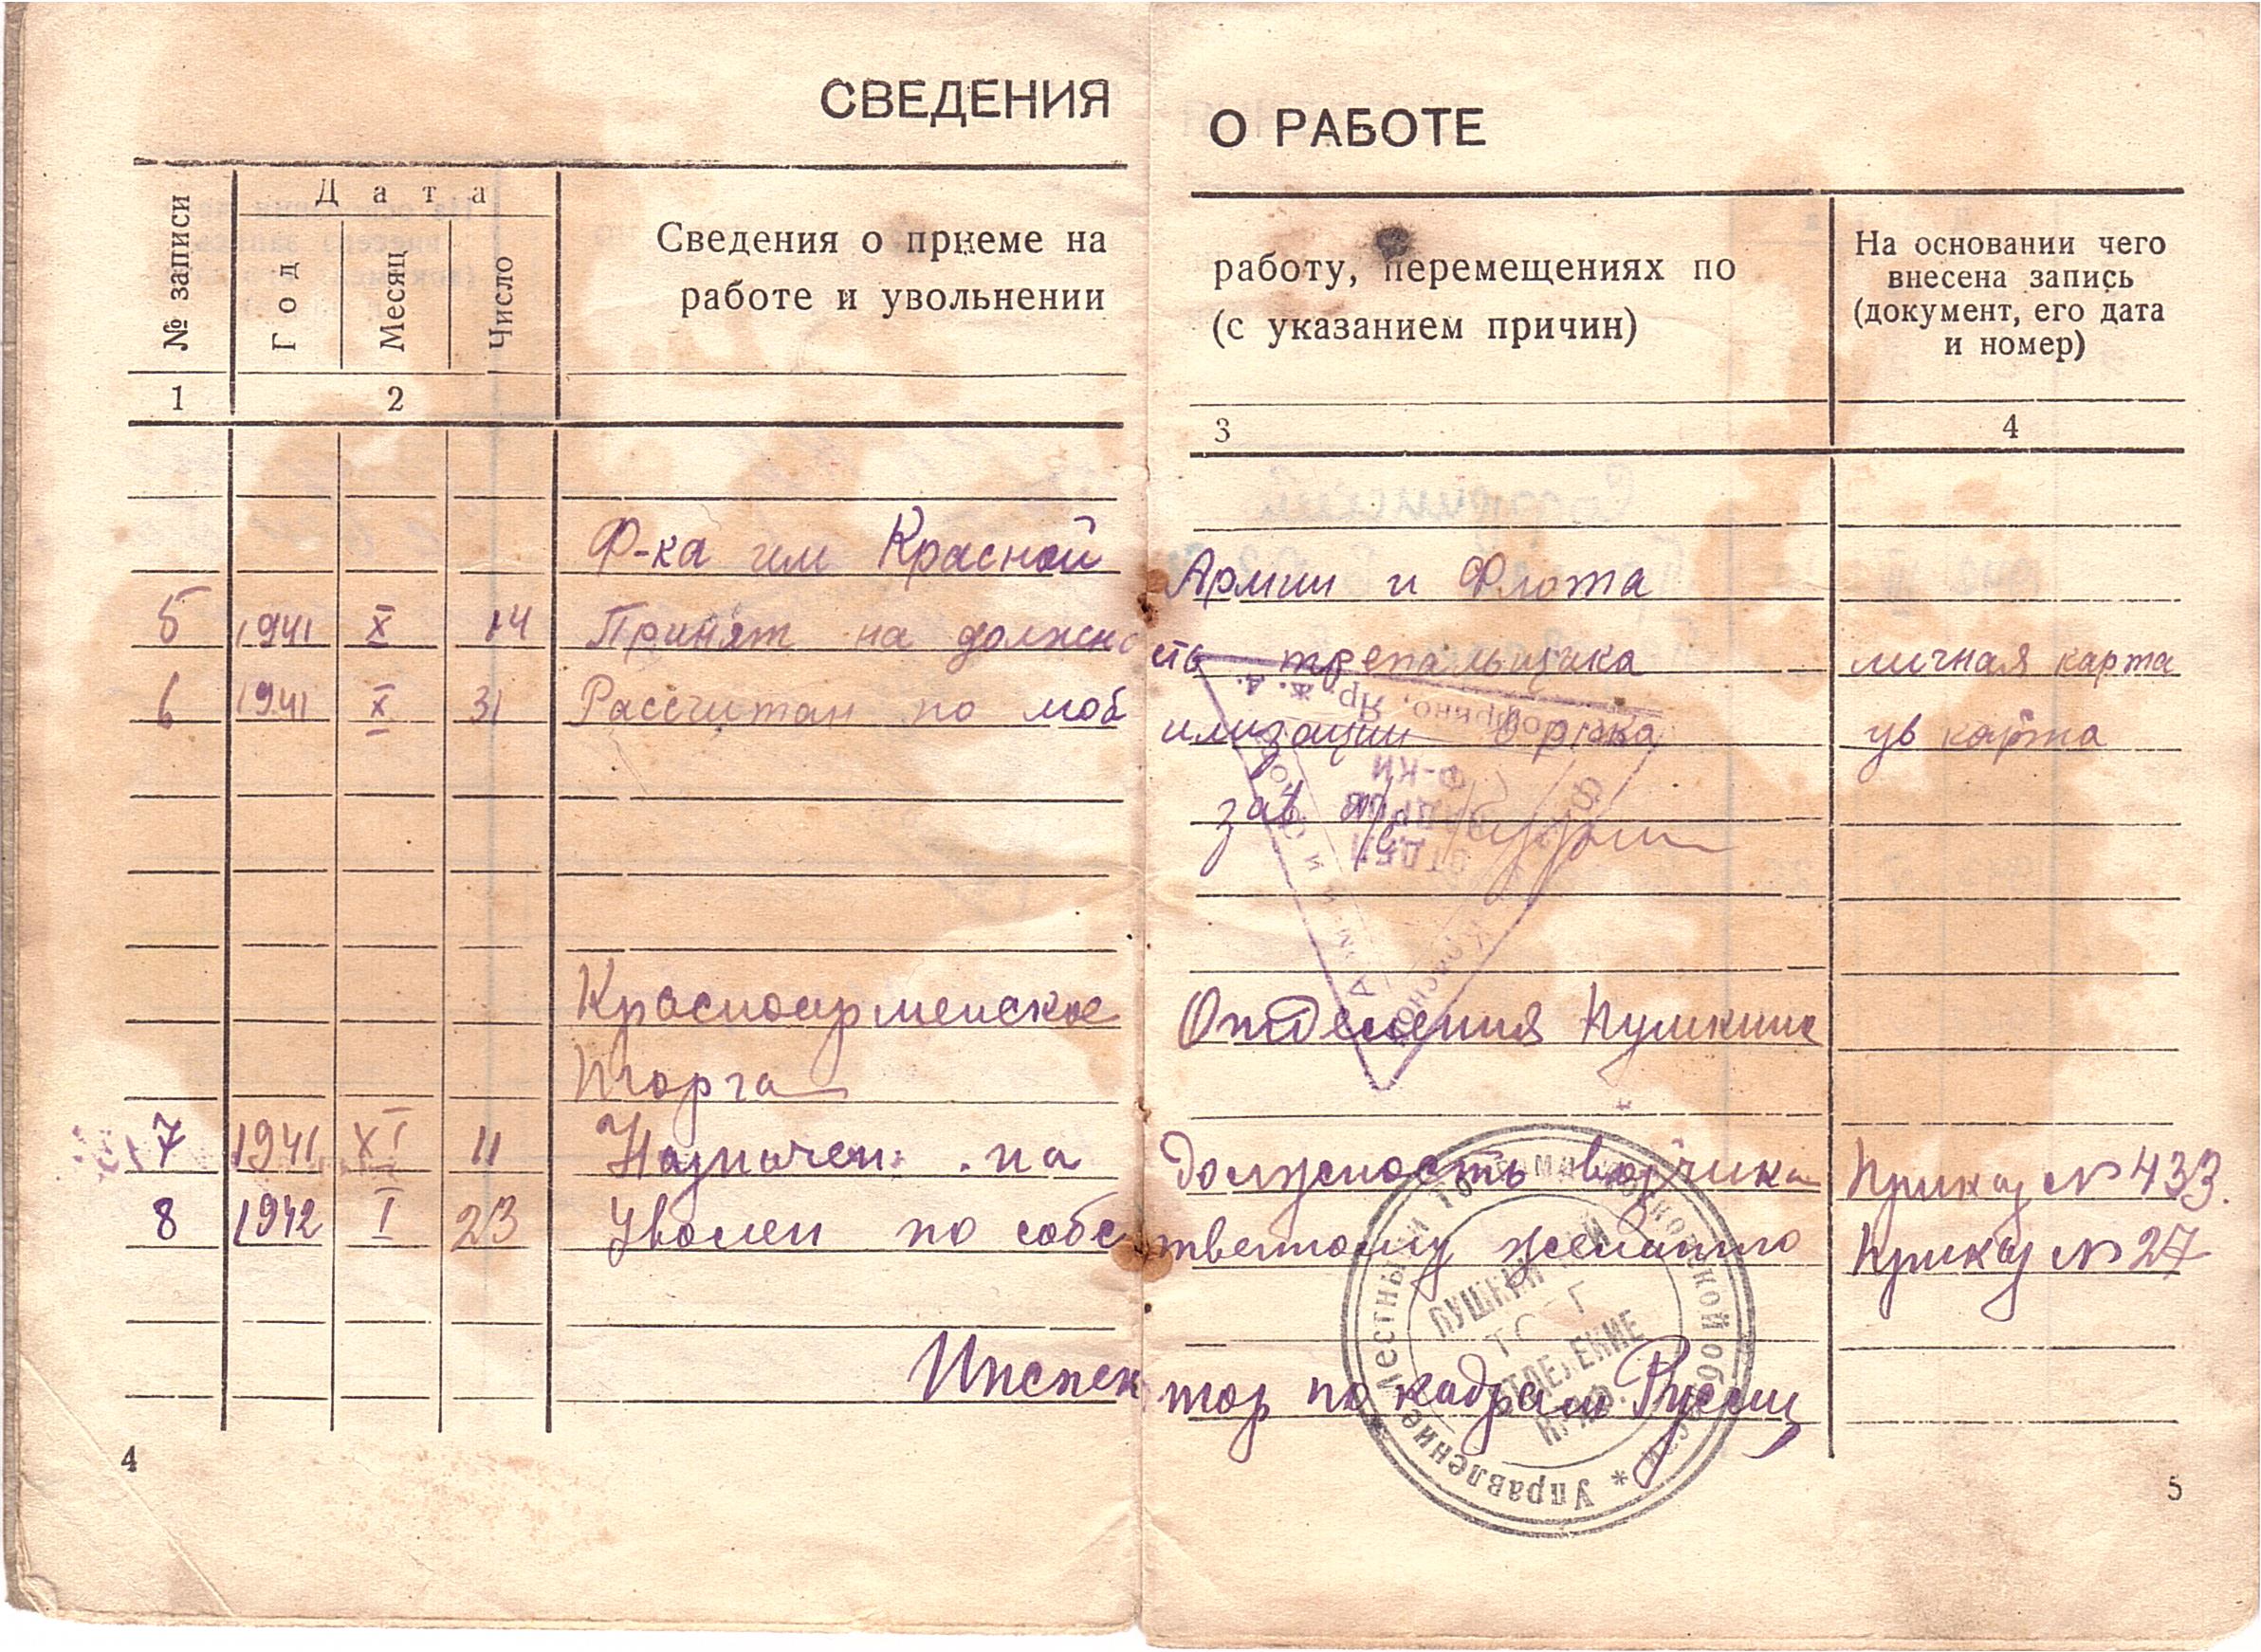 СВЕДЕНИЯ О РАБОТЕ
№ записи
Дата
Год
Месяц
Число
Сведения о приеме на работу, перемещениях по
работе и увольнении (с указанием причин)
На основании чего
внесена запись
(документ, его дата
и номер)
1 2 3 4
Ф-ка им Красной Армии и Флота
5 1941 X 14 Принят на должность трепальщика личная карта
6 1941 X 31 Рассчитан по мобилизации ув карта
зав
Красноармейское Отделения
торга
7 1941 XI 11 Назначен на должность Приказ № 433.
8 1942 I 23 Уволен по собственному желанию Приказ № 27
Инспектор по кадрам
ОТДЕЛ
Ф-КИ
Управление Местными
ПУШКИН
ОТДЕЛЕНИЕ
4
5